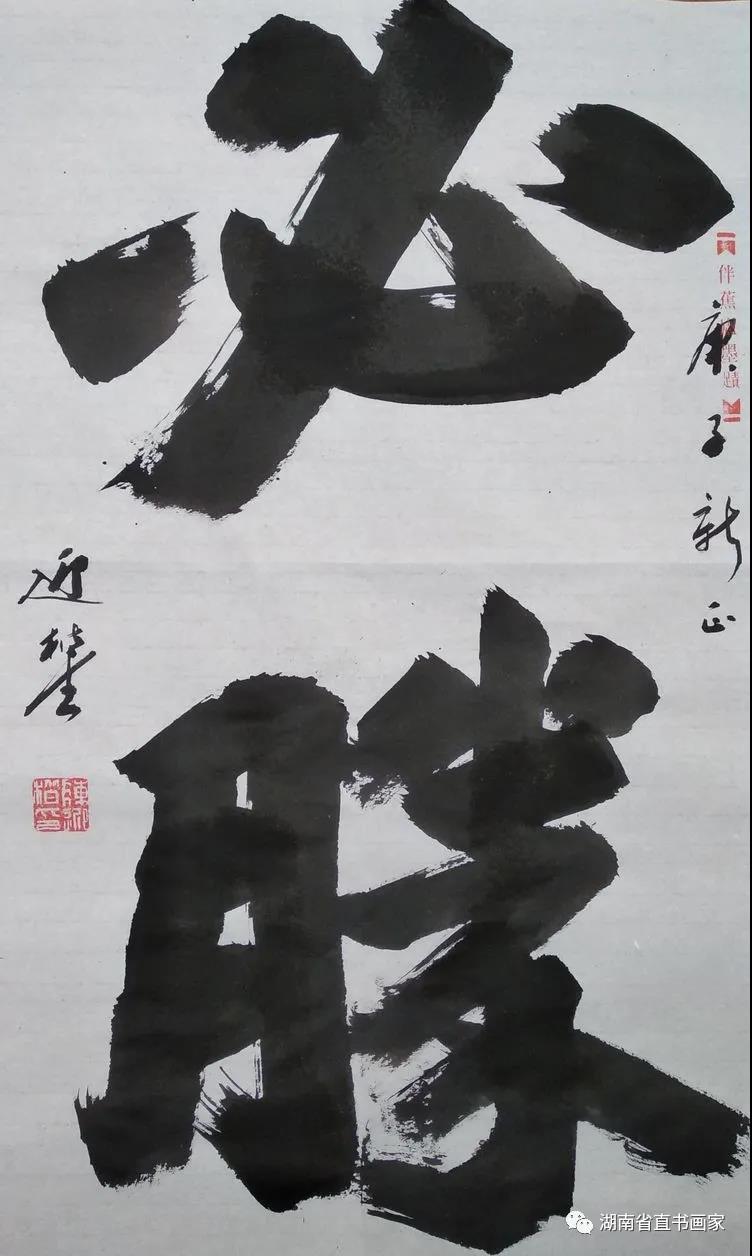 必
勝
庚子新正
迎
伴蕉
墨蹟
湖南省直书画家